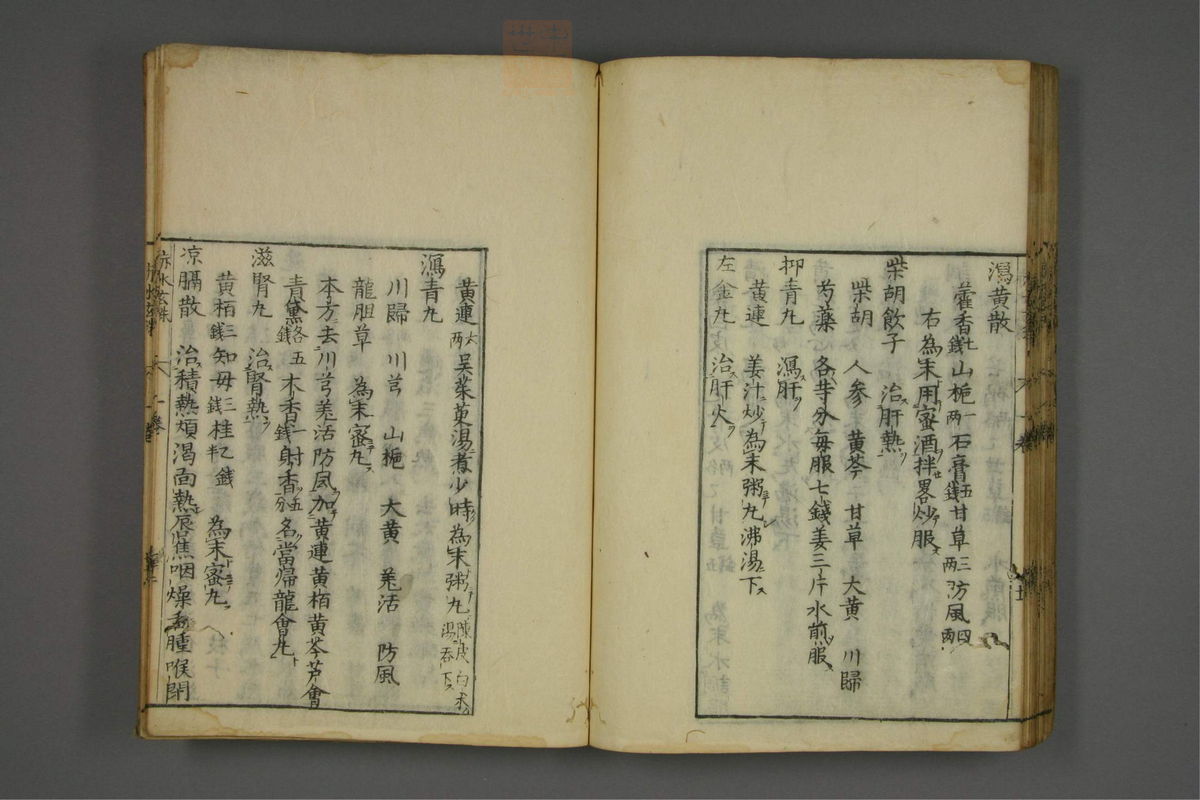 瀉黄散
藿香七錢山梔一兩石膏五錢甘草三兩防風四兩
右為末用蜜酒拌畧炒服ス
柴胡飲子　治ス肝熱ヲ
柴胡　人參　黄芩　甘草　大黄　川歸
芍藥　各等分毎服七錢姜三片水煎服
抑青丸　瀉ス肝ヲ
黄連　姜汁炒為末粥丸沸湯下ス
左金丸　治ス肝火ヲ
黄連六兩吳茱萸湯煮少時為末粥丸陳皮白朮湯吞下ス
瀉青丸
川歸　川芎　山梔　大黄　羌活　防風
龍胆草　為末蜜丸ス
本方去川芎羌活防風加黄連黄栢黄芩芦會
青黛各五錢木香一錢射香五分名當帰龍會丸ト
滋腎丸　治ス腎熱ヲ
黄栢三錢知毋三錢桂半錢　為末蜜丸ス
凉膈散　治ス積熱煩渴面熱唇焦咽燥舌腫喉閉